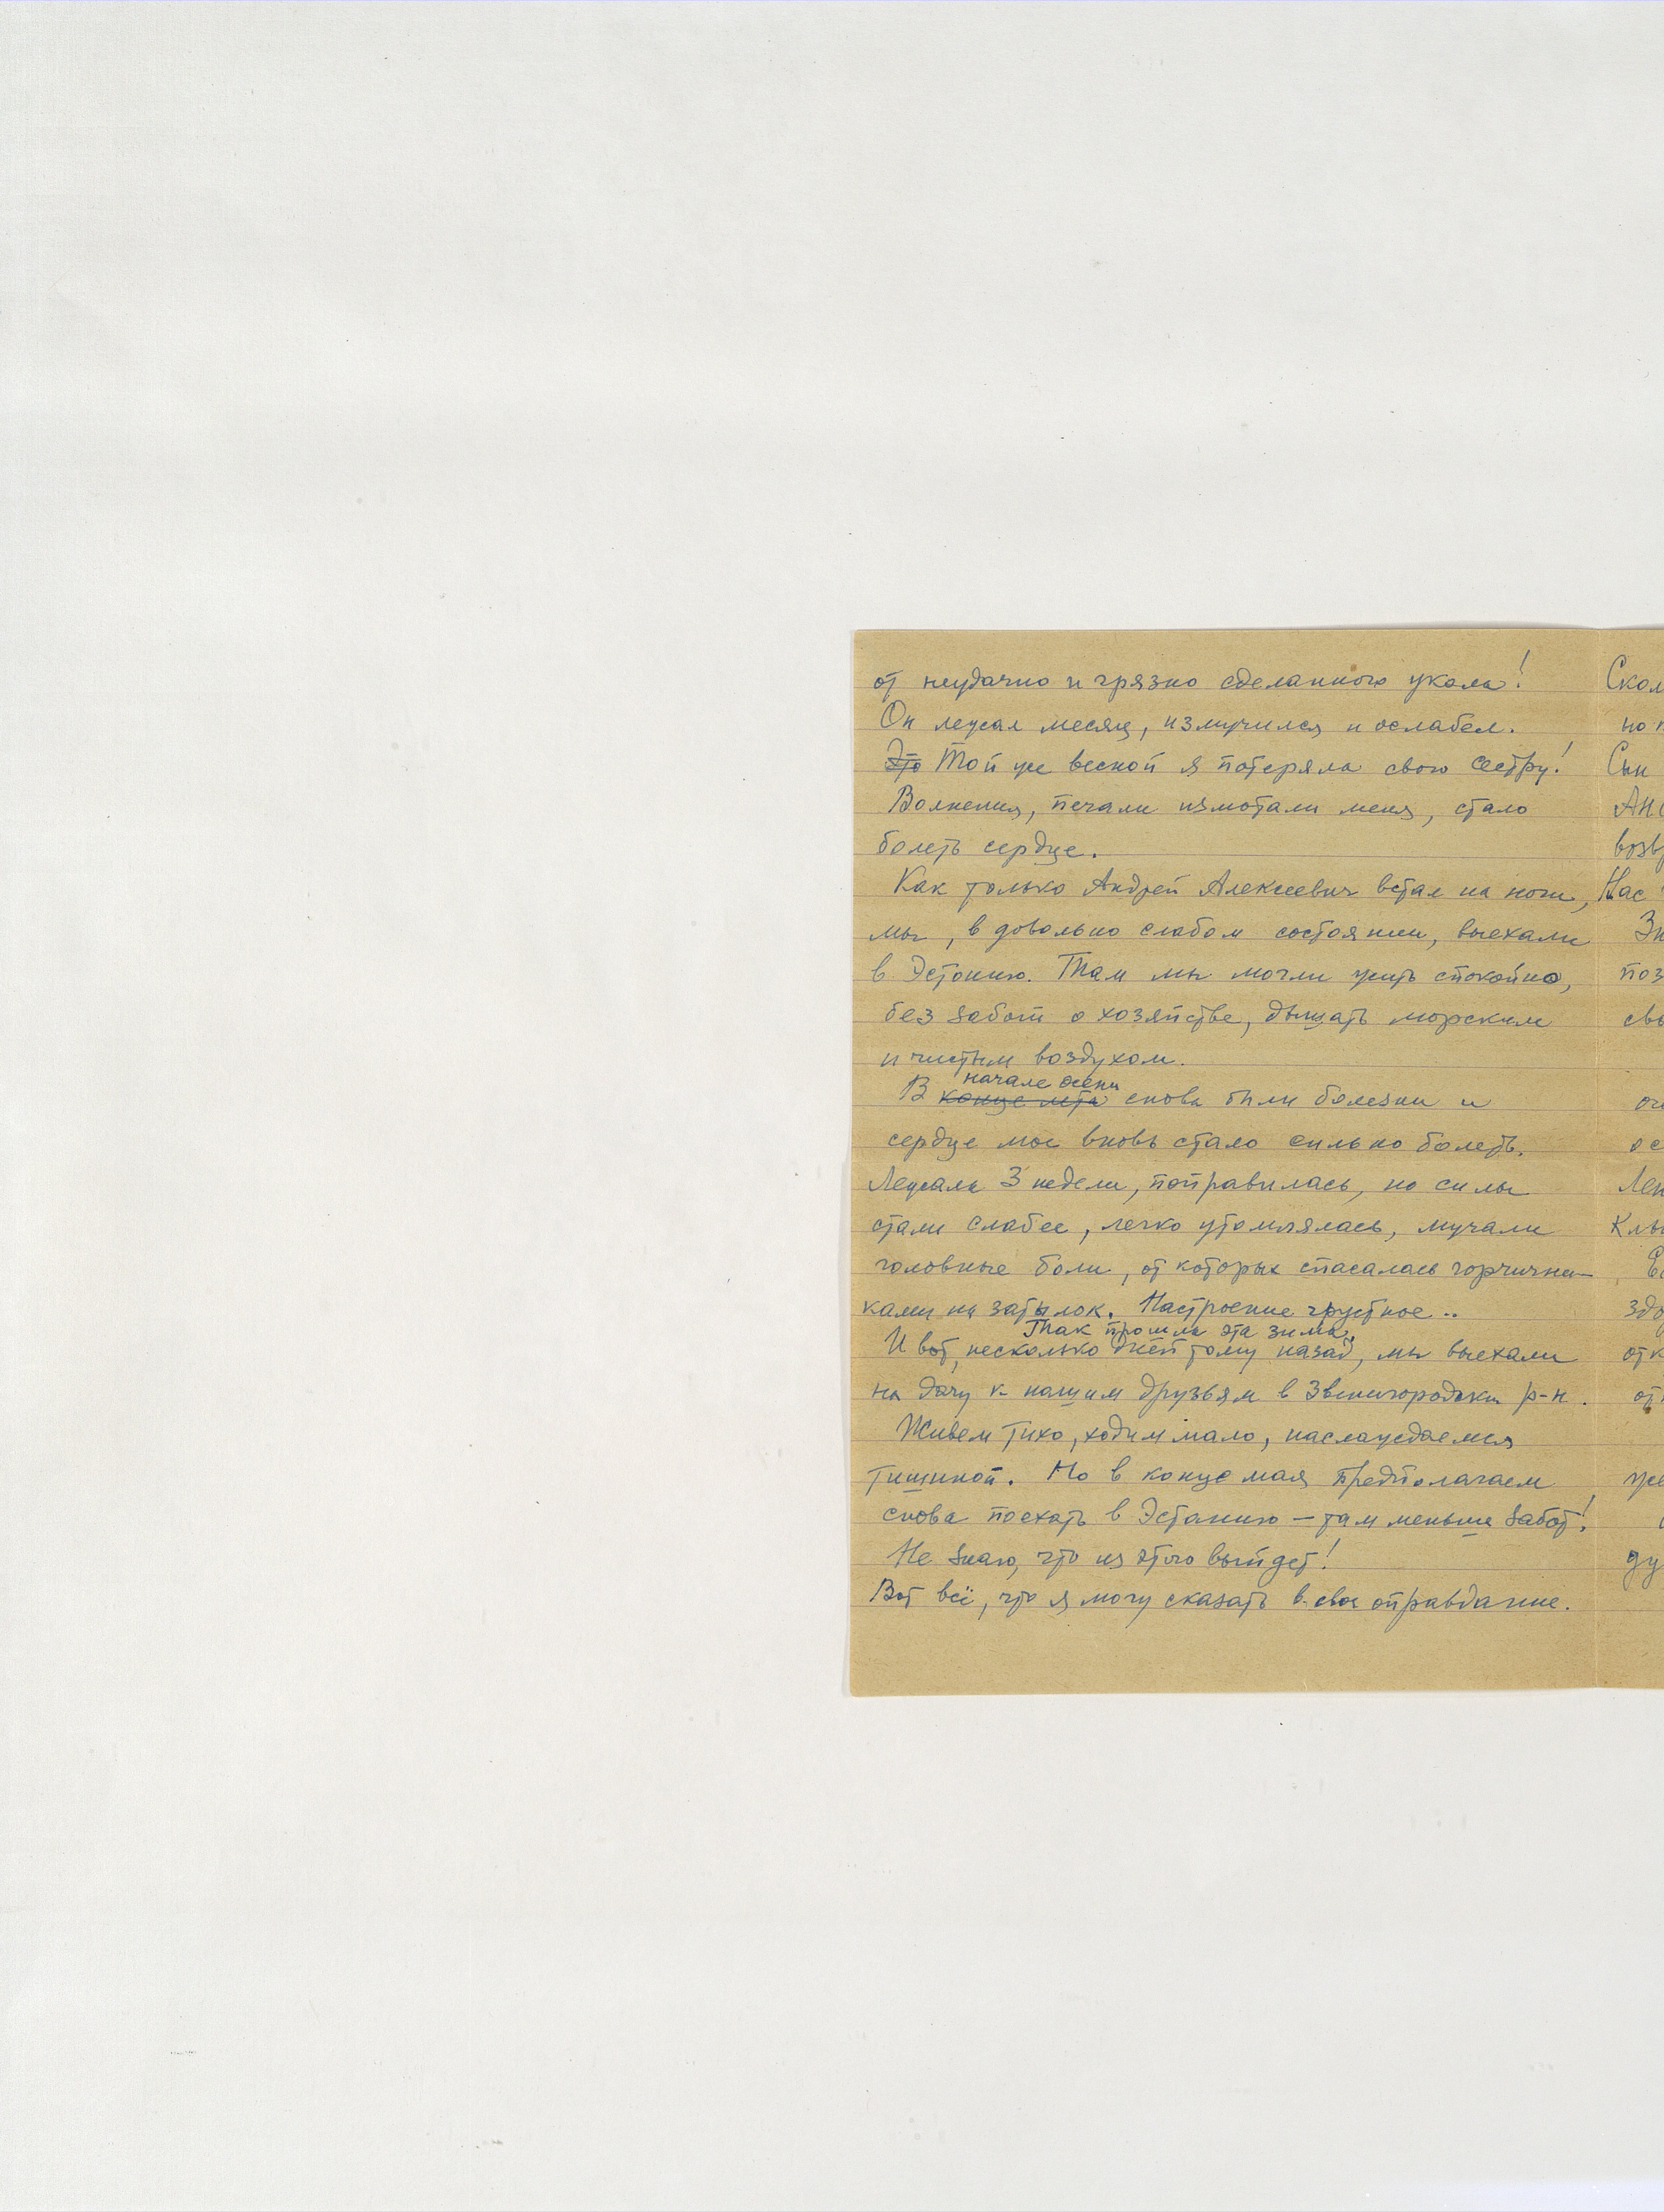 от неудачно и грязно сделанного укола!
Он лежал месяц, измучился и ослабел.
Это Той же весной я потеряла свою сестру!
Волнения, печали измотали меня, стало
болеть сердце.
Как только Андрей Алексеевич встал на ноги,
мы, в довольно слабом состоянии, выехали
в Эстонию. Там мы могли жить спокойно,
без забот о хозяйстве, дышать морским
и чистым воздухом.
начале осени
В конце лета снова были болезни и
сердце мое вновь стало сильно болеть.
Лежала 3 недели, поправилась, но силы
стали слабее, легко утомлялась, мучали
головные боли, от которых спасалась горчични-
ками на затылок. Настроение грустное..
Так прошла эта зима.
И вот, несколько дней тому назад, мы выехали
на дачу к нашим друзьям в Звенигородски р-н.
Живем тихо, ходим мало, наслаждаемся
тишиной. Но в конце мая предполагаем
снова поехать в Эстонию — там меньше забот!
Не знаю, что из этого выйдет!
Вот всё, что я могу сказать в свое оправдание.
Скол
но п
Сын
Нас
поз
свы
ос
Лен
здо
отк